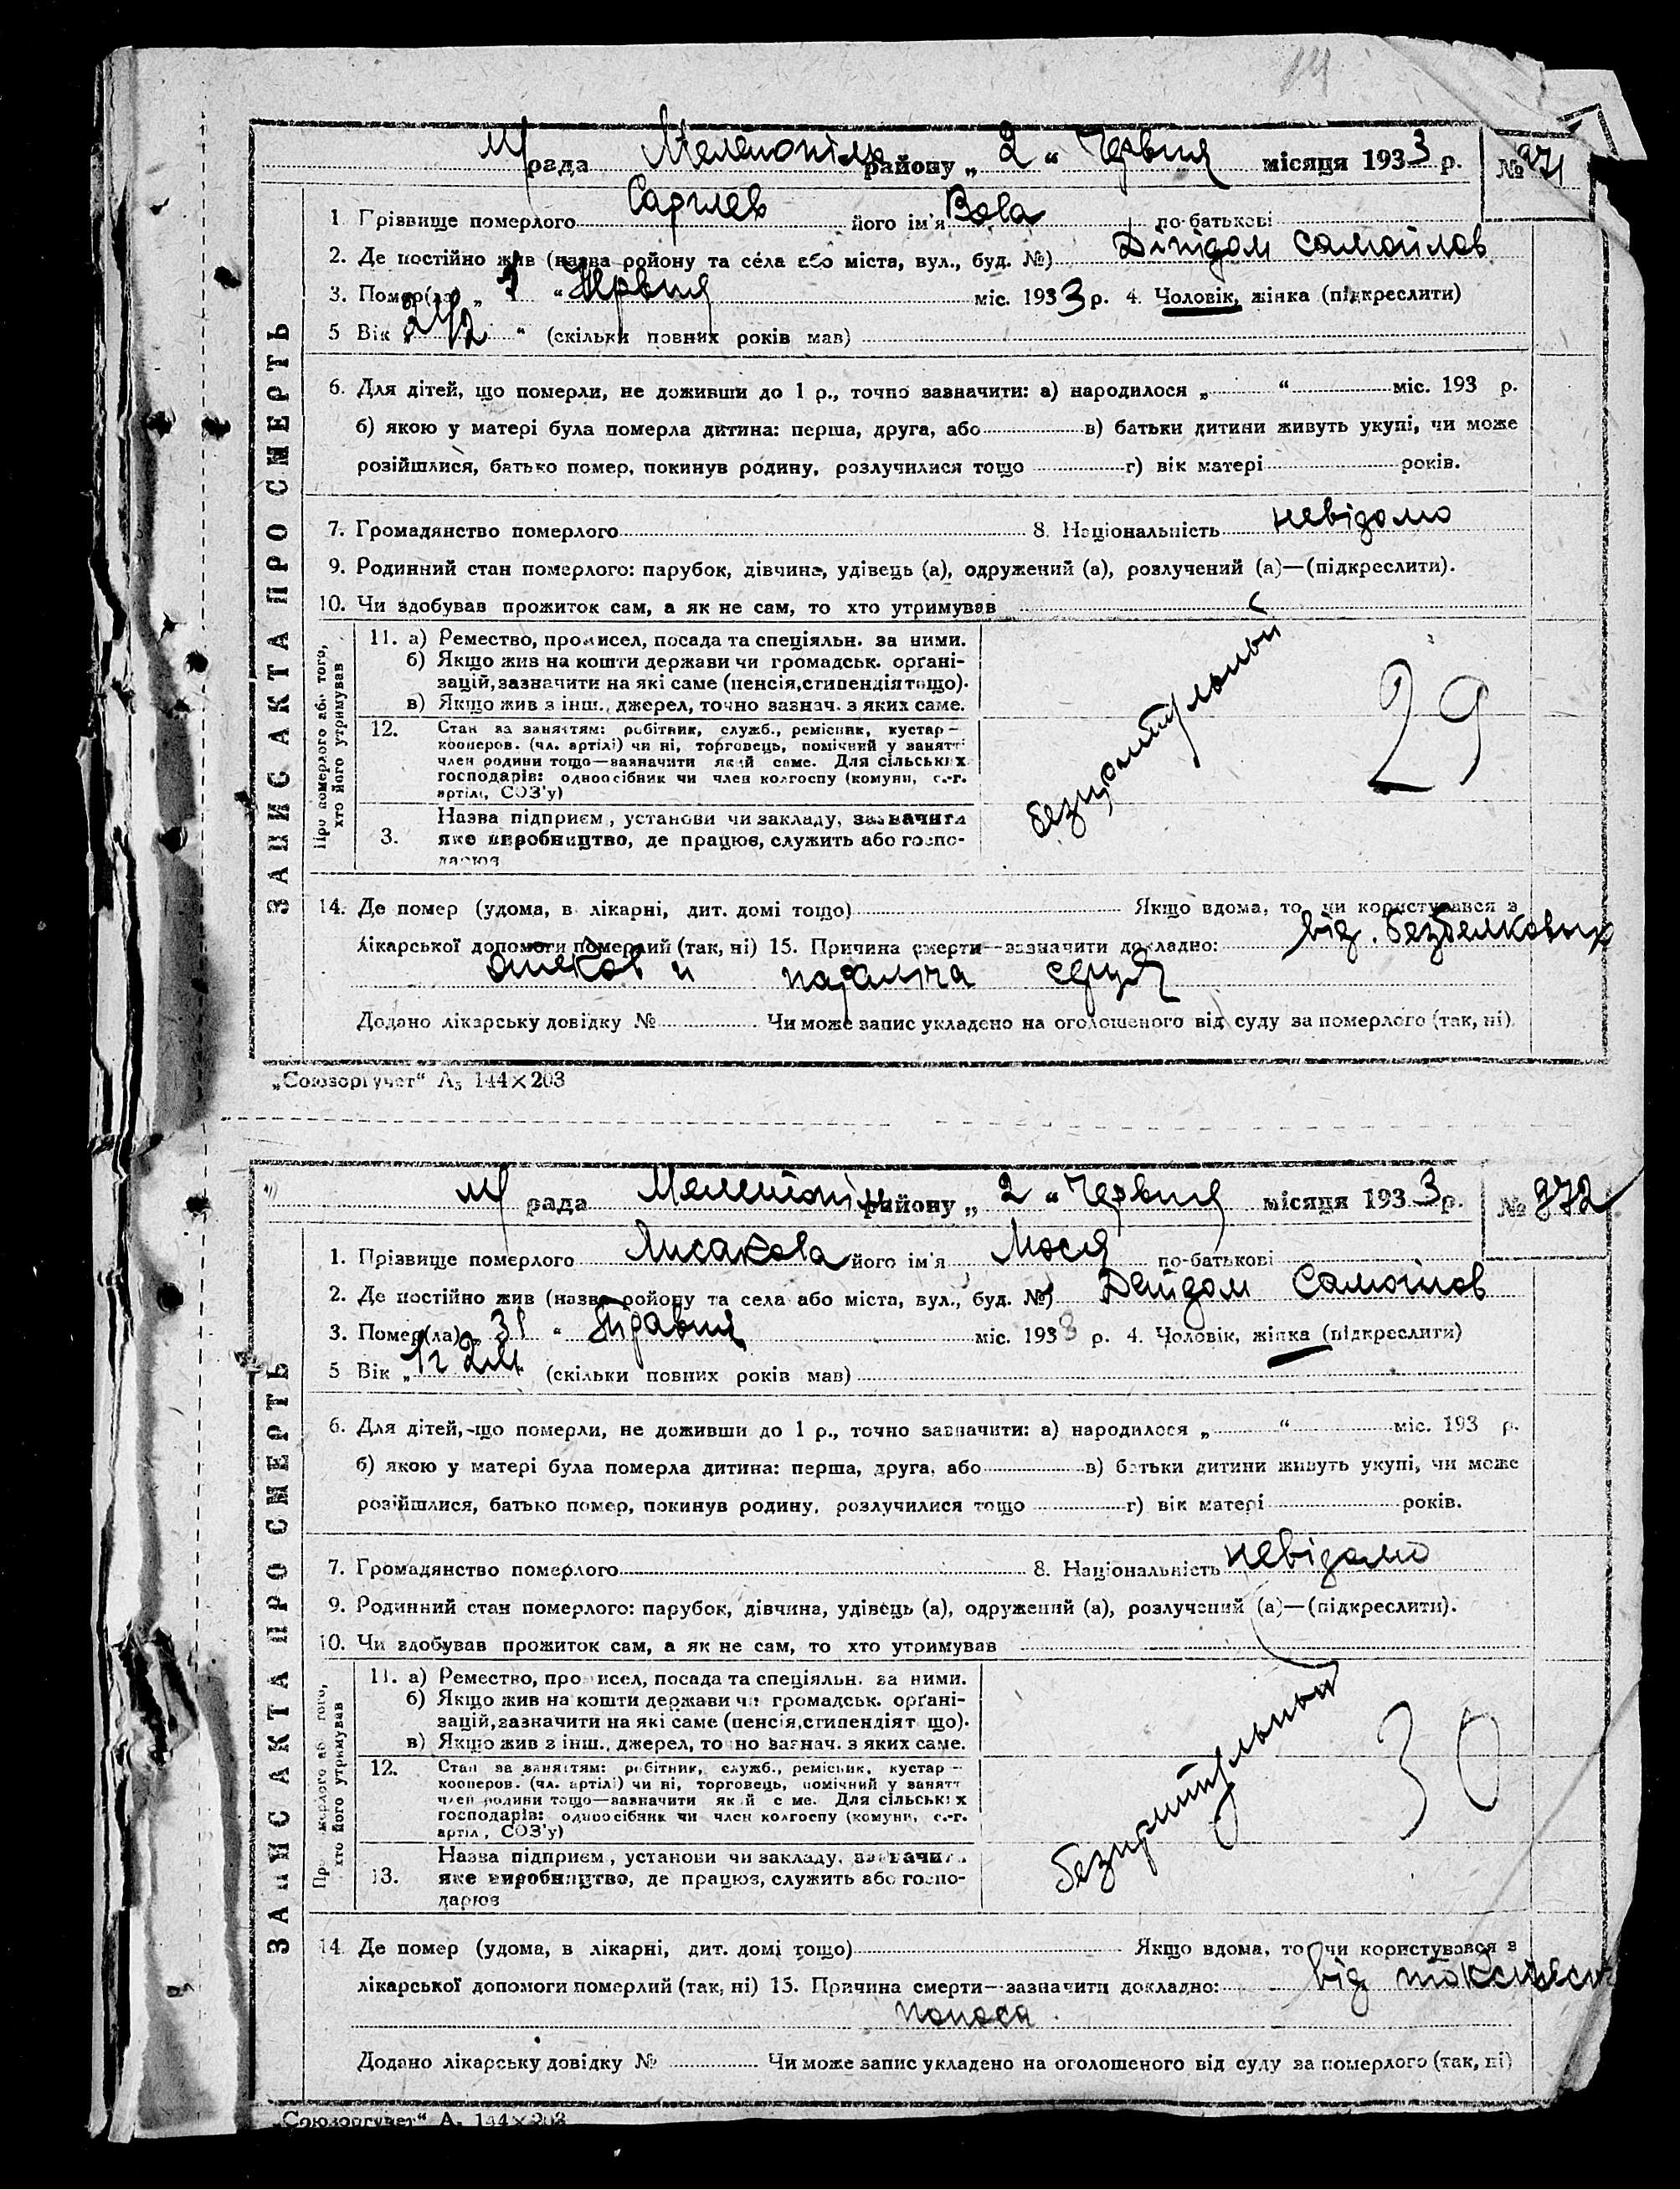 14
М/рада Мелитопіль району „ 2 “ Червня місяця 1933 р. № 971
ЗАПИС АКТА ПРО СМЕРТЬ
1 Прізвище померлого Сарилев його ім'я Вова по-батькові
2. Де постійно жив (назва ройону та села або міста, вул., буд. №) Дитдом Самойлов
3. Помер(ла) „ 1 “ Червня міс. 1933 р. 4. Чоловік, жінка (підкреслити)
5 Вік „ 2 1/2 “ (скільки повних років мав)
6. Для дітей, що померли, не доживши до 1 р., точно зазначити: а) народилося „ “ міс. 193 р.
б) якою у матері була померла дитина: перша, друга, або в) батьки дитини живуть укупі, чи може
розійшлися, батько помер, покинув родину, розлучилися тощо г) вік матері років.
7. Громадянство померлого 8. Національність невідомо
9. Родинний стан померлого: парубок, дівчина, удівець (а), одружений (а), розлучений (а)—(підкреслити).
10. Чи здобував прожиток сам, а як не сам, то хто утримував
Про померлого або того, хто його утримував
11. а) Ремество, промисел, посада та спеціяльн. за ними.
б) Якщо жив на кошти держави чи громадськ. органі-
зацій, зазначити на які саме (пенсія, стипендія тощо).
в) Якщо жив з інш., джерел, точно зазнач. з яких саме.
12. Стан за заняттям: робітник, служб., ремісник, кустар—
кооперов. (чл. артілі) чи ні, торговець, помічний у занятті
член родини тощо—зазначити який саме. Для сільських
господарів: одноосібник чи член колгоспу (комуни, с.-г.
артілі, СОЗ'у)
Назва підприєм., установи чи закладу, зазначити
3. яке виробництво, де працює, служить або госпо-
дарює
безпритульный
29
14. Де помер (удома, в лікарні, дит. домі тощо) Якщо вдома, то чи користувався з
лікарської допомоги померлий (так, ні) 15. Причина смерти—зазначити докладно: від. безбелковых
отеков и параліча серця
Додано лікарську довідку № Чи може запис укладено на оголошеного від суду за померлого (так, ні)
„Союзоргучет“ А₅ 144×203
М/рада Мелитопіль району „ 2 “ Червня місяця 1933 р. № 972
ЗАПИС АКТА ПРО СМЕРТЬ
1. Прізвище померлого Лисакова його ім'я Люся по-батькові
2. Де постійно жив (назва ройону та села або міста, вул., буд. №) Дитдом Самойлов
3. Помер(ла) „ 31 “ Травня міс. 1933 р. 4. Чоловік, жінка (підкреслити)
5 Вік „ 1г 2м (скільки повних років мав)
6. Для дітей, що померли, не доживши до 1 р., точно зазначити: а) народилося „ “ міс. 193 р.
б) якою у матері була померла дитина: перша, друга, або в) батьки дитини живуть укупі, чи може
розійшлися, батько помер, покинув родину, розлучилися тощо г) вік матері років.
7. Громадянство померлого 8. Національність невідомо
9. Родинний стан померлого: парубок, дівчина, удівець (а), одружений (а), розлучений (а)—(підкреслити).
10. Чи здобував прожиток сам, а як не сам, то хто утримував
Про померлого або того, хто його утримував
11. а) Ремество, промисел, посада та спеціяльн. за ними.
б) Якщо жив на кошти держави чи громадськ. органі-
зацій, зазначити на які саме (пенсія, стипендія тощо).
в) Якщо жив з інш., джерел, точно зазнач. з яких саме.
12. Стан за заняттям: робітник, служб., ремісник, кустар—
кооперов. (чл. артілі) чи ні, торговець, помічний у занятт
член родини тощо—зазначити який саме. Для сільських
господарів: одноосібник чи член колгоспу (комуни, с.-г.
артіл, СОЗ'у)
Назва підприєм., установи чи закладу, зазначити
13. яке виробництво, де працює, служить або госпо-
дарює
безпритульный
30
14. Де помер (удома, в лікарні, дит. домі тощо) Якщо вдома, то чи користувався з
лікарської допомоги померлий (так, ні) 15. Причина смерти—зазначити докладно: від
поноса.
Додано лікарську довідку № Чи може запис укладено на оголошеного від суду за померлого (так, ні)
„Союзоргучет“ А₅ 144×203